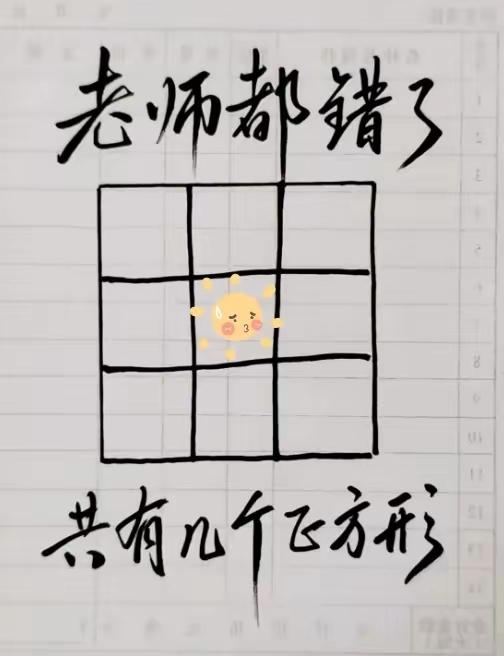 老师都错了
共有几个正方形